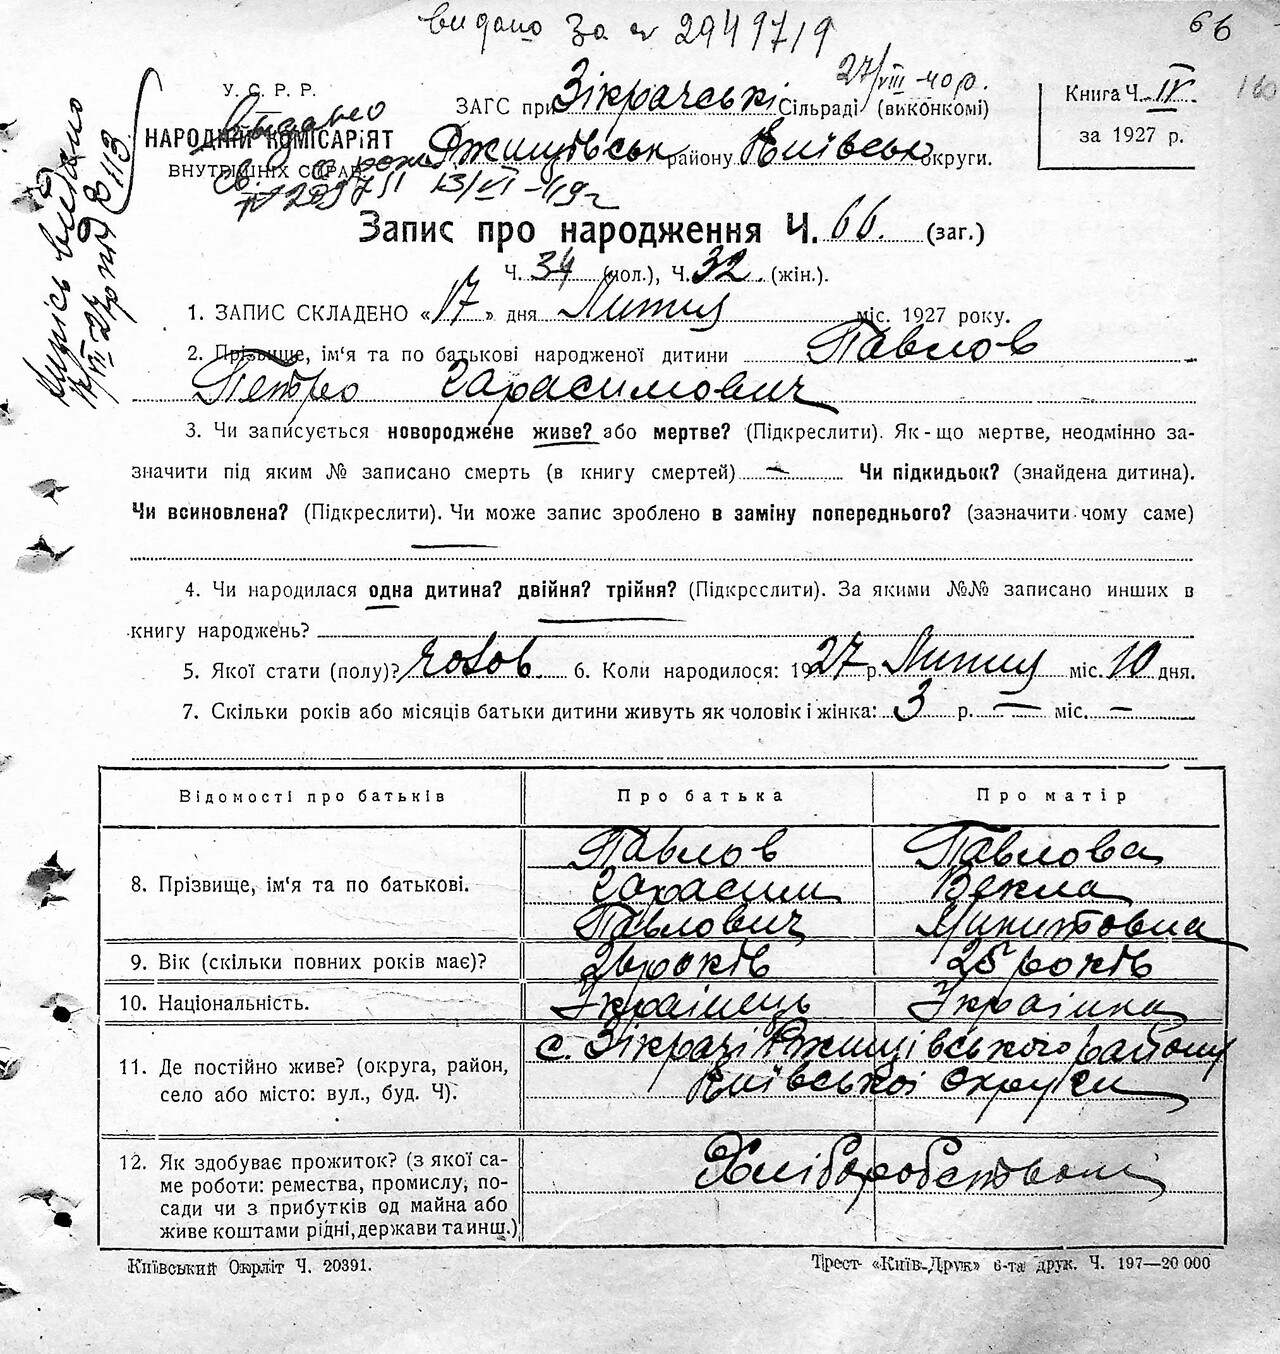 видано За № 2949719
66
27/VIII-40 р.
160
У. С. Р. Р.
НАРОДНІЙ КОМІСАРІЯТ
ВНУТРІШНІХ СПРАВ
Видано
св. о рожд
13/VI-49 г
ЗАГС при Зікрачські Сільраді (виконкомі)
Ржищівськ району Київсько округи.
Книга Ч. IV.
за 1927 р.
Випись видано
113
Запис про народження Ч. 66. (заг.)
Ч. 34 (чол.), Ч. 32. (жін.).
1. ЗАПИС СКЛАДЕНО «17» дня Липня міс. 1927 року.
2. Прізвище, ім'я та по батькові народженої дитини Павлов
Петро Гарасимович
3. Чи записується новороджене живе? або мертве? (Підкреслити). Як-що мертве, неодмінно за-
значити під яким № записано смерть (в книгу смертей) — Чи підкидьок? (знайдена дитина).
Чи всиновлена? (Підкреслити). Чи може запис зроблено в заміну попереднього? (зазначити чому саме)
4. Чи народилася одна дитина? двійня? трійня? (Підкреслити). За якими №№ записано инших в
книгу народжень?
5. Якої стати (полу)? чолов. 6. Коли народилося: 1927 р. Липня міс. 10 дня.
7. Скільки років або місяців батьки дитини живуть як чоловік і жінка: 3 р. — міс. —
Відомості про батьків Про батька Про матір
8. Прізвище, ім'я та по батькові.
Павлов Павлова
Гарасим Векла
Павлович Микитовна
9. Вік (скільки повних років має)? 26 років 25 років
10. Національність. Українець Українка
11. Де постійно живе? (округа, район,
село або місто: вул., буд. Ч).
с. Зікрачі Ржищівського району
Київської округи
12. Як здобуває прожиток? (з якої са-
ме роботи: ремества, промислу, по-
сади чи з прибутків од майна або
живе коштами рідні, держави та инш.)
Хліборобством
Київський Окрліт Ч. 20391.
Трест «Київ-Друк» 6-та друк. Ч. 197—20 000